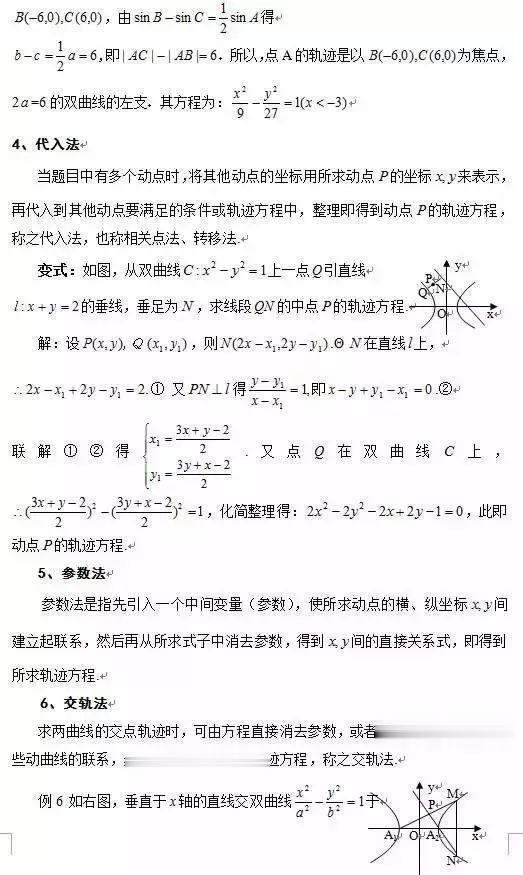 B(−6,0),C(6,0)，由 sin B − sin C = 1/2 sin A 得
b − c = 1/2 a = 6，即 | AC | − | AB |= 6．所以，点 A 的轨迹是以 B(−6,0),C(6,0)为焦点，
2a =6 的双曲线的左支．其方程为：x²/9 − y²/27 = 1(x < −3)
4、代入法
当题目中有多个动点时，将其他动点的坐标用所求动点 P 的坐标 x, y 来表示，
再代入到其他动点要满足的条件或轨迹方程中，整理即得到动点 P 的轨迹方程，
称之代入法，也称相关点法、转移法．
变式：如图，从双曲线 C : x² − y² = 1 上一点 Q 引直线
l : x + y = 2 的垂线，垂足为 N，求线段 QN 的中点 P 的轨迹方程．
y P Q N O x
解：设 P(x, y)，Q (x₁, y₁)，则 N(2x − x₁,2y − y₁)．Θ N 在直线 l 上，
∴ 2x − x₁ + 2y − y₁ = 2.① 又 PN ⊥ l 得 (y − y₁)/(x − x₁) = 1, 即 x − y + y₁ − x₁ = 0 .②
联解①②得 { x₁ = (3x + y − 2)/2 y₁ = (3y + x − 2)/2 ．又点 Q 在双曲线 C 上，
∴ ((3x + y − 2)/2)² − ((3y + x − 2)/2)² = 1，化简整理得：2x² − 2y² − 2x + 2y − 1 = 0，此即
动点 P 的轨迹方程．
5、参数法
参数法是指先引入一个中间变量（参数），使所求动点的横、纵坐标 x, y 间
建立起联系，然后再从所求式子中消去参数，得到 x, y 间的直接关系式，即得到
所求轨迹方程．
6、交轨法
求两曲线的交点轨迹时，可由方程直接消去参数，或者
些动曲线的联系，迹方程，称之交轨法．
例 6 如右图，垂直于 x 轴的直线交双曲线 x²/a² − y²/b² = 1 于
y M P A₁ O A₂ x N